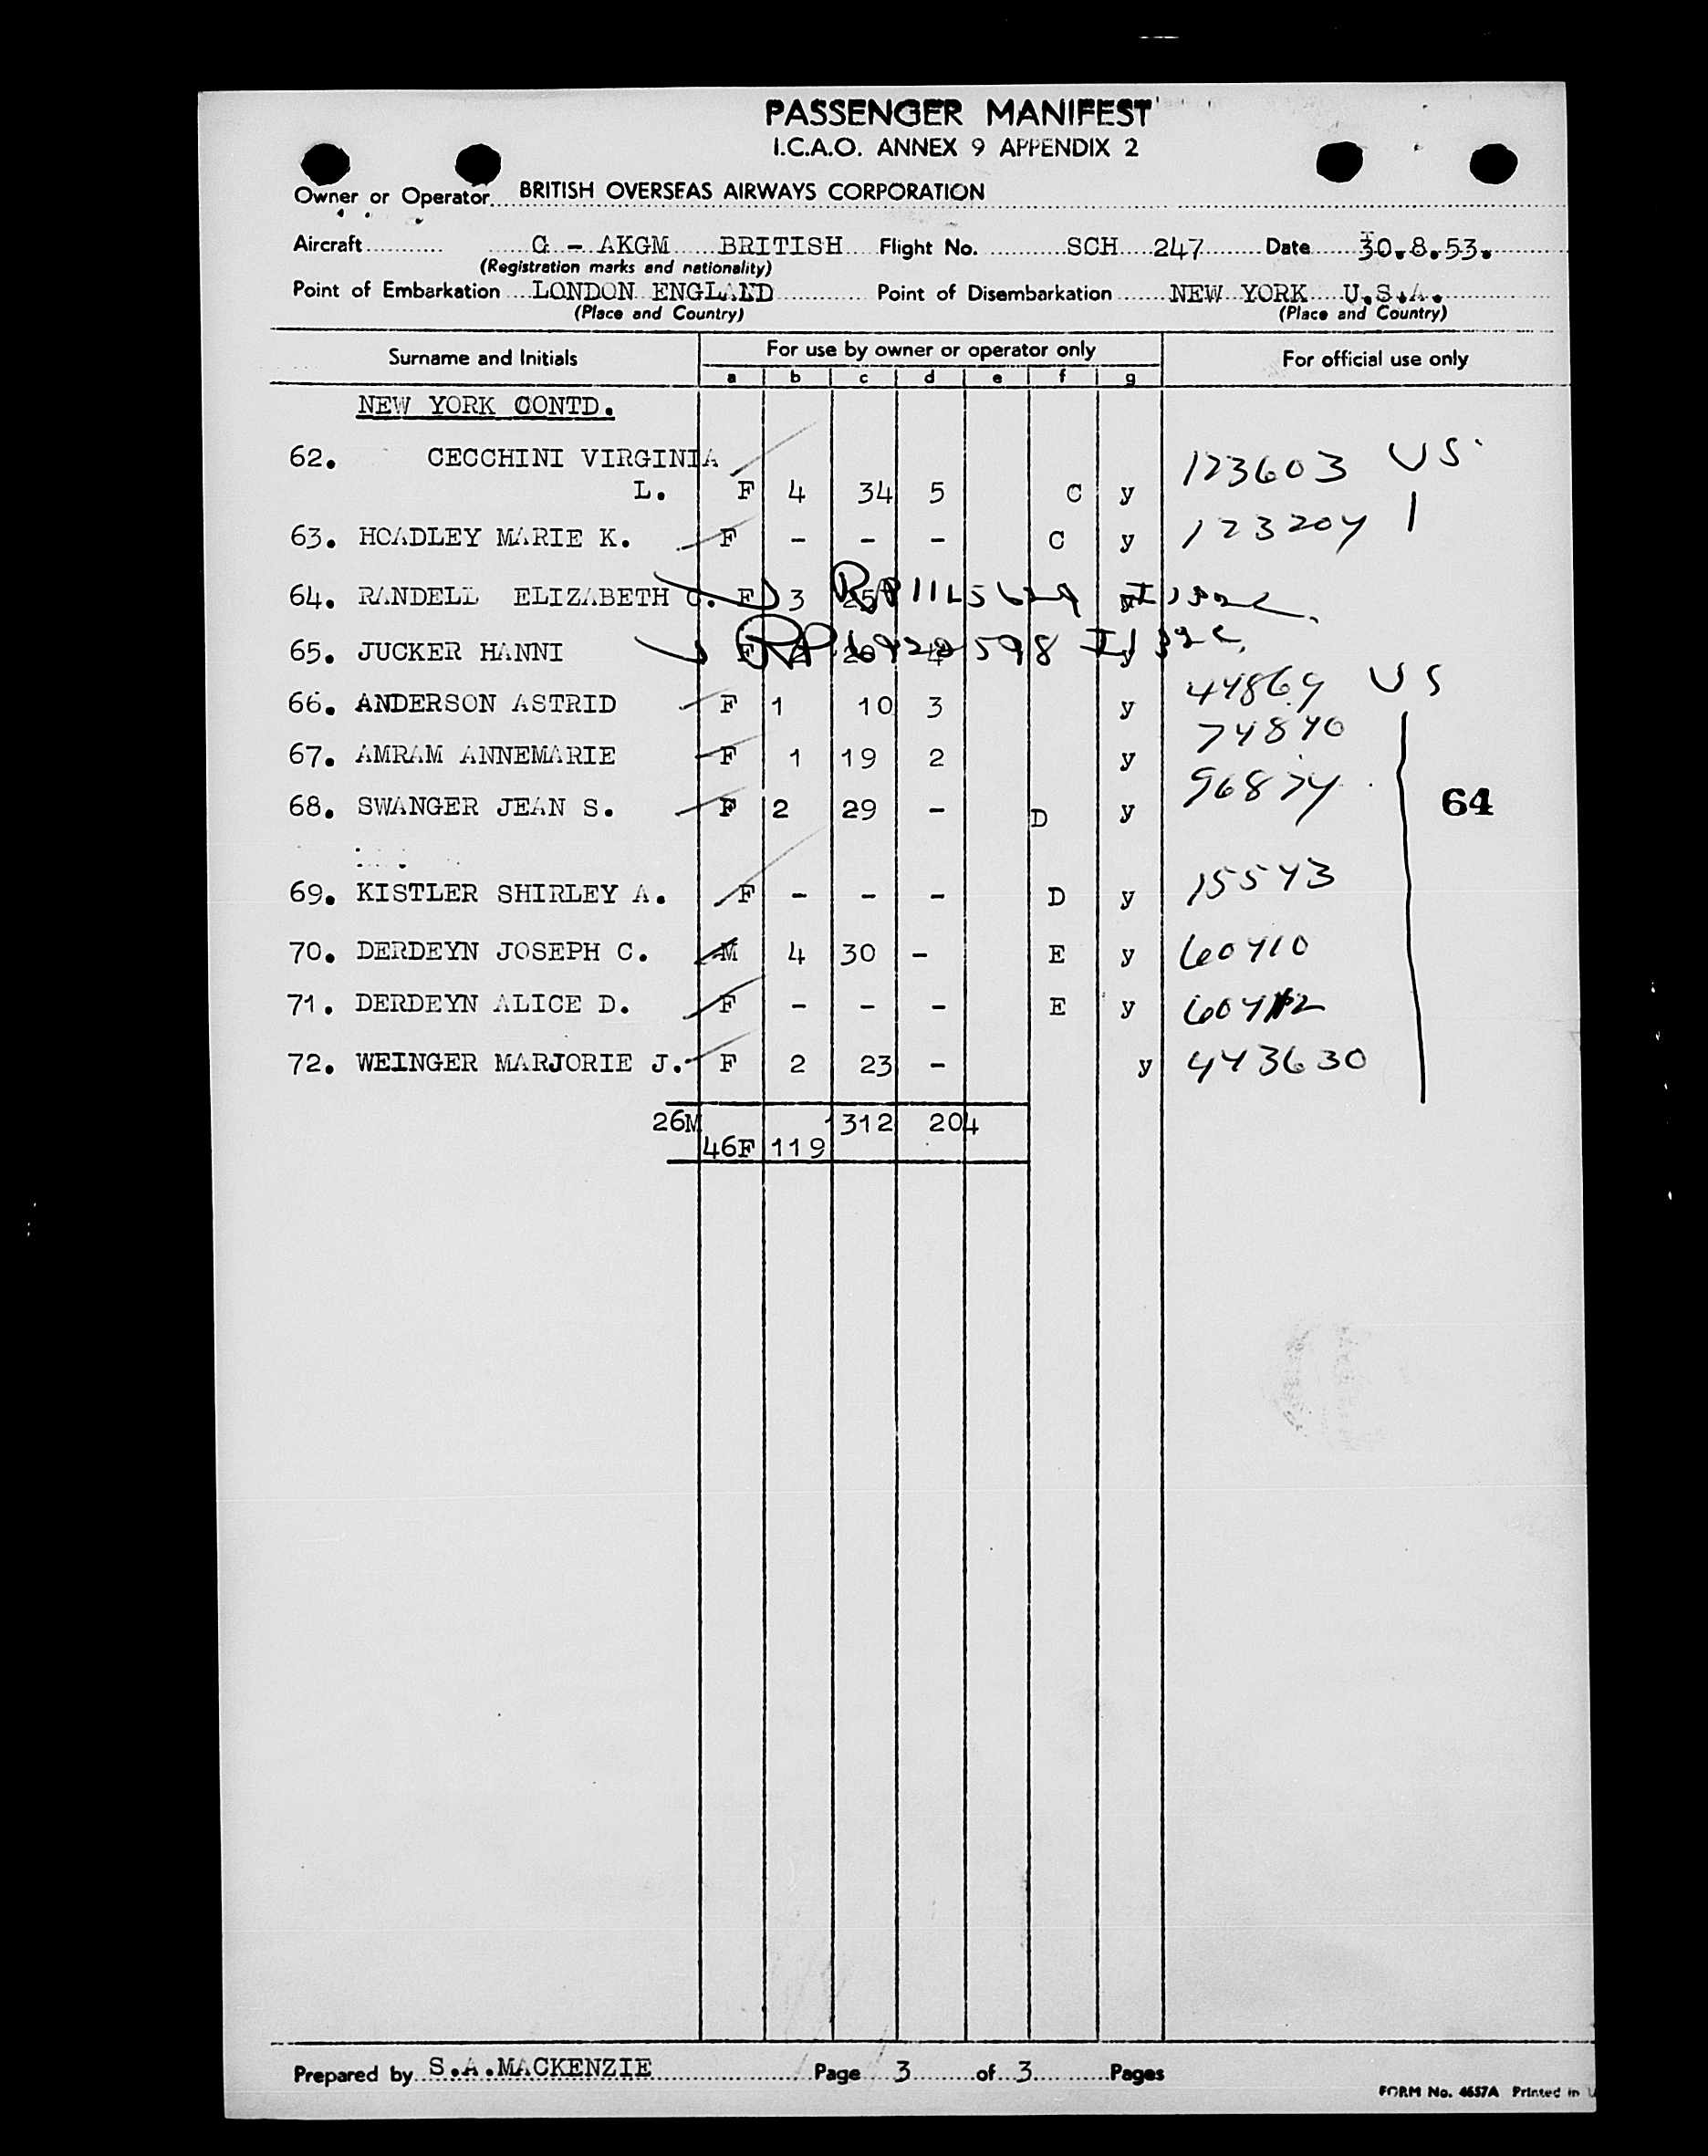 PASSENGER MANIFEST
I.C.A.O. ANNEX 9 APPENDIX 2
Owner or Operator BRITISH OVERSEAS AIRWAYS CORPORATION
Aircraft G - AKGM BRITISH Flight No. SCH 247 Date 30.8.53.
(Registration marks and nationality)
Point of Embarkation LONDON ENGLAND Point of Disembarkation NEW YORK U.S.A.
(Place and Country) (Place and Country)
Surname and Initials For use by owner or operator only For official use only
a b c d e f g
NEW YORK CONTD.
62. CECCHINI VIRGINIA 123603 US
L. F 4 34 5 C y
63. HOADLEY MARIE K. F - - - C y 123204
64. RANDELL ELIZABETH C. F 3
65. JUCKER HANNI
66. ANDERSON ASTRID F 1 10 3 y 44869 US
67. AMRAM ANNEMARIE F 1 19 2 y 74840
68. SWANGER JEAN S. F 2 29 - D y 96874
64
69. KISTLER SHIRLEY A. F - - - D y 15543
70. DERDEYN JOSEPH C. M 4 30 - E y 60410
71. DERDEYN ALICE D. F - - - E y
72. WEINGER MARJORIE J. F 2 23 - y 443630
26M 1312 204
46F 119
Prepared by S.A.MACKENZIE Page 3 of 3 Pages
FORM No. 4657A Printed in